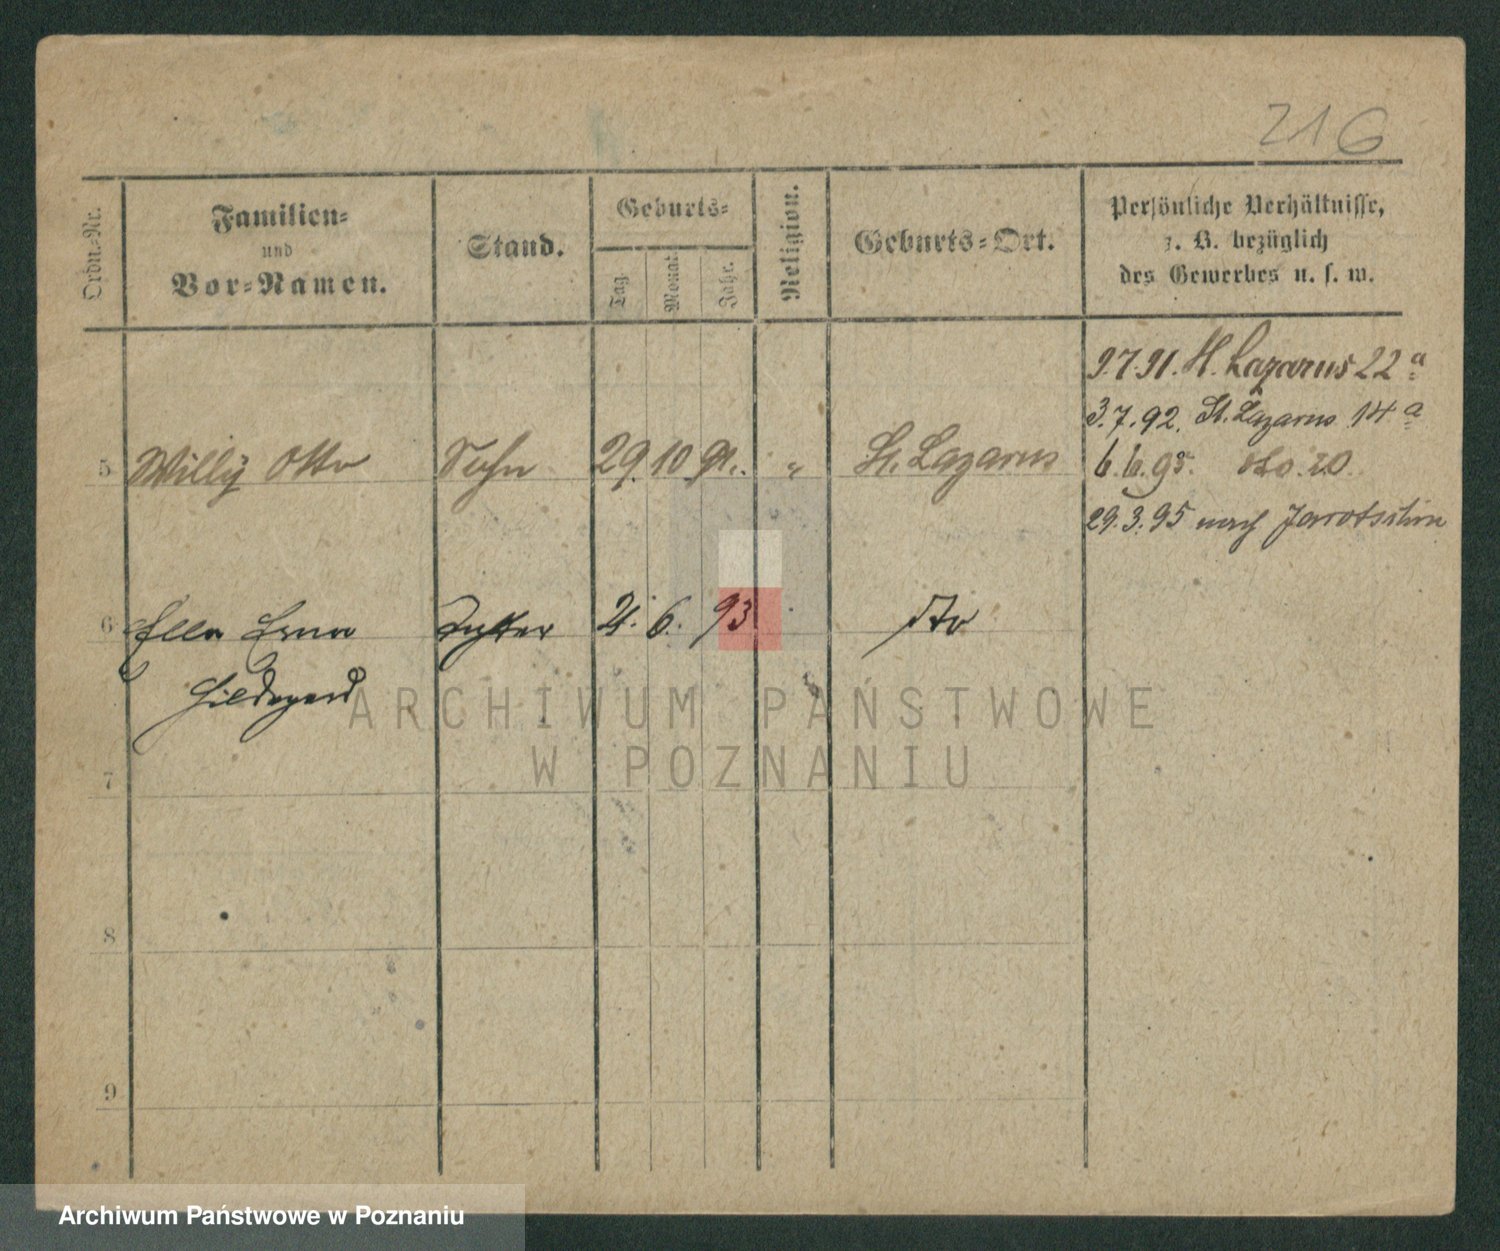 216
Ordn.-Nr.
Familien-
und
Vor-Namen.
Stand.
Geburts-
Tag.
Monat.
Jahr.
Religion.
Geburts-Ort.
Persönliche Verhältnisse,
z. B. bezüglich
des Gewerbes u. s. w.
9.7.91. St. Lazarus 22 a
3.7.92. St. Lazarus 14 a
5 Willy Otto Sohn 29. 10. 91. " St. Lazarus
6.6.95. dto. 20.
29.3.95 nach Jarotschin
6 Ella Erna Tochter 21. 6. 93 dto
Hildegard
7
8
9
ARCHIWUM PAŃSTWOWE
W POZNANIU
Archiwum Państwowe w Poznaniu